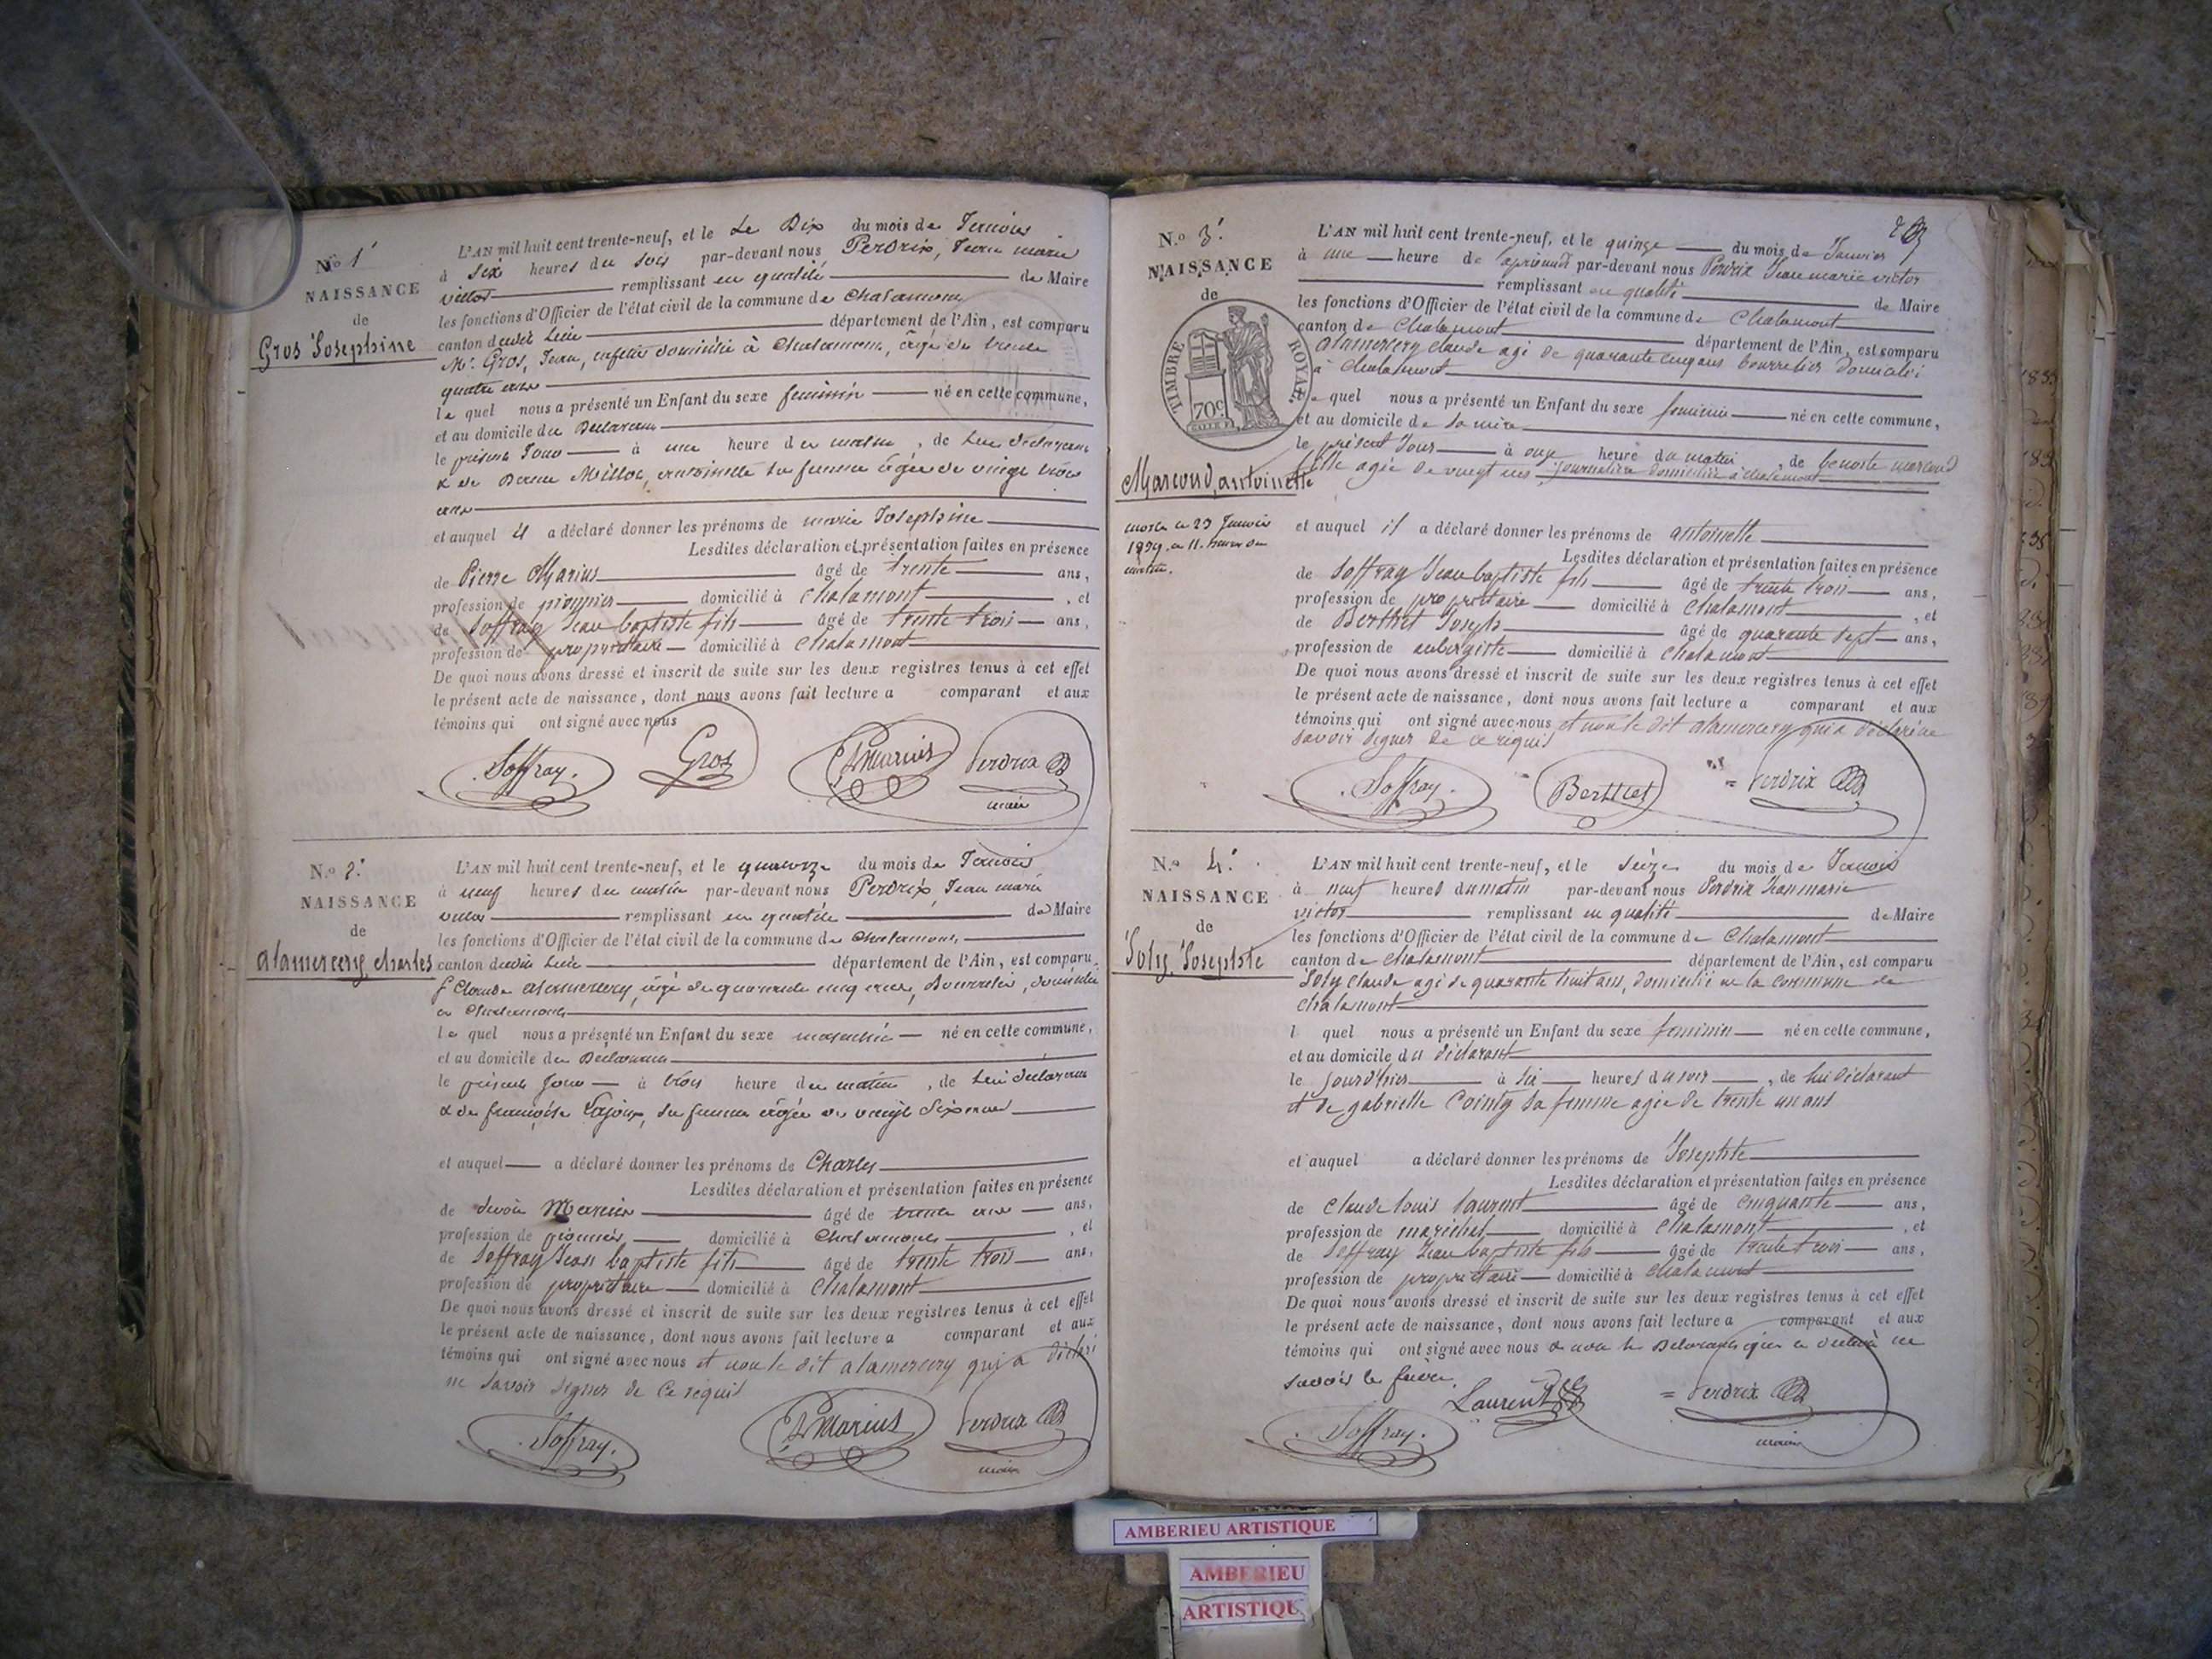 No 1
NAISSANCE
de
Gros Josephine
L'AN mil huit cent trente-neuf, et le Le Dix du mois de Janvier
à Six heures du soir par-devant nous Perdrix, Jean marie
victor remplissant en qualité de Maire
les fonctions d'Officier de l'état civil de la commune de Chalamont
canton dudit Lieu département de l'Ain, est comparu
Mr. Gros, Jean, domicilié à Chalamont, âgé de trente
quatre ans
le quel nous a présenté un Enfant du sexe feminin né en cette commune,
et au domicile du Déclarant
le présent Jour à une heure du matin, de Lui déclarant
& de Millot, antoinette sa femme âgée de vingt trois
ans
et auquel il a déclaré donner les prénoms de marie Josephine
Lesdites déclaration et présentation faites en présence
de Pierre Marius âgé de trente ans,
profession de pionnier domicilié à Chalamont, et
de Joffray Jean baptiste fils âgé de trente trois ans,
profession de propriétaire domicilié à Chalamont
De quoi nous avons dressé et inscrit de suite sur les deux registres tenus à cet effet
le présent acte de naissance, dont nous avons fait lecture a comparant et aux
témoins qui ont signé avec nous
Joffray. Gros P marius Perdrix
maire
N.o 2.
NAISSANCE
de
alamercery, charles
L'AN mil huit cent trente-neuf, et le quatorze du mois de Janvier
à neuf heures du matin par-devant nous Perdrix, Jean marie
victor remplissant en qualité de Maire
les fonctions d'Officier de l'état civil de la commune de Chalamont
canton dudit Lieu département de l'Ain, est comparu
Claude alamercery, âgé de quarante cinq ans, Bourrelier, domicilié
a Chalamont
le quel nous a présenté un Enfant du sexe masculin né en cette commune,
et au domicile du Déclarant
le présent Jour à trois heure du matin, de Lui déclarant
& de françoise Lajoux, sa femme âgée de vingt six ans
et auquel a déclaré donner les prénoms de Charles
Lesdites déclaration et présentation faites en présence
de Marius âgé de trente ans ans,
profession de pionnier domicilié à Chalamont, et
de Joffray Jean baptiste fils âgé de trente trois ans,
profession de propriétaire domicilié à Chalamont
De quoi nous avons dressé et inscrit de suite sur les deux registres tenus à cet effet
le présent acte de naissance, dont nous avons fait lecture a comparant et aux
témoins qui ont signé avec nous et non le dit alamercery qui a déclaré
ne savoir signer de ce requis
Joffray. P marius Perdrix
maire
N.o 3.
NAISSANCE
de
TIMBRE ROYAL
70c
Marcoud, antoinette
morte le 23 Janvier
1839. a 11. heures du
matin.
L'AN mil huit cent trente-neuf, et le quinze du mois de Janvier
à une heure de apresmidi par-devant nous Perdrix Jean marie victor
remplissant en qualité de Maire
les fonctions d'Officier de l'état civil de la commune de Chalamont
canton de Chalamont département de l'Ain, est comparu
alamercery claude agé de quarante cinq ans bourrelier domicilié
à Chalamont
le quel nous a présenté un Enfant du sexe feminin né en cette commune,
et au domicile de sa mère
le présent Jour à onze heure du matin, de benoite marcoud
fille agée de vingt ans, journalière domiciliée à chalamont
et auquel il a déclaré donner les prénoms de antoinette
Lesdites déclaration et présentation faites en présence
de Joffray Jean baptiste fils âgé de trente trois ans,
profession de propriétaire domicilié à Chalamont, et
de Berthet Joseph âgé de quarante sept ans,
profession de aubergiste domicilié à Chalamont
De quoi nous avons dressé et inscrit de suite sur les deux registres tenus à cet effet
le présent acte de naissance, dont nous avons fait lecture a comparant et aux
témoins qui ont signé avec nous et non le dit alamercery qui a déclaré ne
savoir signer de ce requis
Joffray. Berthet Perdrix
N.o 4.
NAISSANCE
de
Joly, Josephte
L'AN mil huit cent trente-neuf, et le Seize du mois de Janvier
à neuf heures du matin par-devant nous Perdrix Jean marie
victor remplissant en qualité de Maire
les fonctions d'Officier de l'état civil de la commune de Chalamont
canton de Chalamont département de l'Ain, est comparu
Joly claude agé de quarante huit ans, domicilié en la commune de
Chalamont
l quel nous a présenté un Enfant du sexe feminin né en cette commune,
et au domicile du déclarant
le Jour d'hier à six heures du soir, de lui déclarant
et de gabrielle Cointy sa femme agée de trente un ans
et auquel a déclaré donner les prénoms de Josephte
Lesdites déclaration et présentation faites en présence
de Claude louis laurent âgé de cinquante ans,
profession de maréchal domicilié à Chalamont, et
de Joffray Jean baptiste fils âgé de trente trois ans,
profession de propriétaire domicilié à Chalamont
De quoi nous avons dressé et inscrit de suite sur les deux registres tenus à cet effet
le présent acte de naissance, dont nous avons fait lecture a comparant et aux
témoins qui ont signé avec nous & non le Déclarant qui a déclaré ne
savoir le faire.
Joffray. Laurent Perdrix
maire
AMBERIEU ARTISTIQUE
AMBERIEU
ARTISTIQU